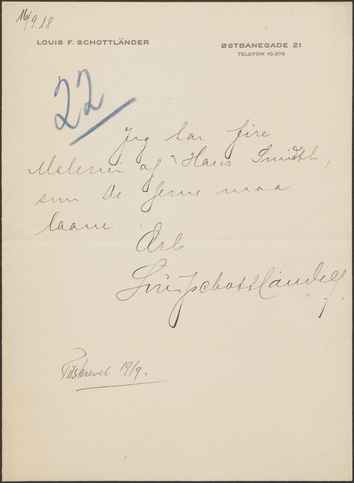 14/9.18
LOUIS F. SCHOTTLÄNDER
ØSTBANEGADE 21
TELEFON
22
Jeg har fire
Malerier af Hans Smidth,
som De gerne maa
laane
Ærb
Louis Schottländer
Tilskrevet 19/9.